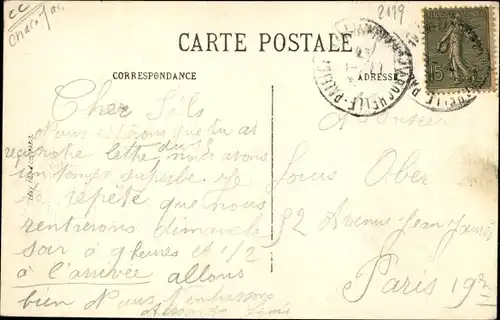 CC
Char. Inf.
2179
CARTE POSTALE
CORRESPONDANCE
ADRESSE
15
LA ROCHELLE-PALLICE
Cher Fils
Nous espérons que tu as
reçu notre lettre du 8 nous avons
un temps superbe. Je
te repète que nous
rentrerons dimanche
soir à 9 heures et 1/2
à l'arrivée allons
bien Nous t'embrassons
Monsieur
Louis Ober
92 Avenue Jean Jaurès
Paris 19e